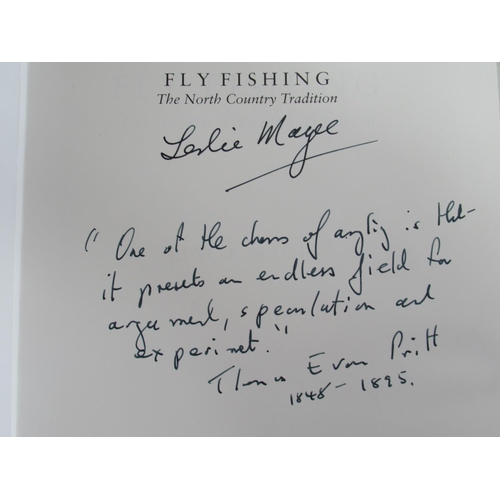 FLY FISHING
The North Country Tradition
Leslie Magee
"One of the charms of angling is that
it presents an endless field for
argument, speculation and
experiment."
Thomas Evan Pritt
1848-1895.